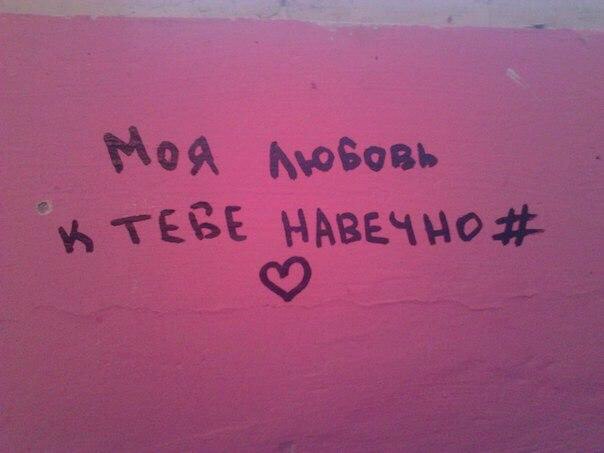 Моя любовь
к тебе навечно#
♡